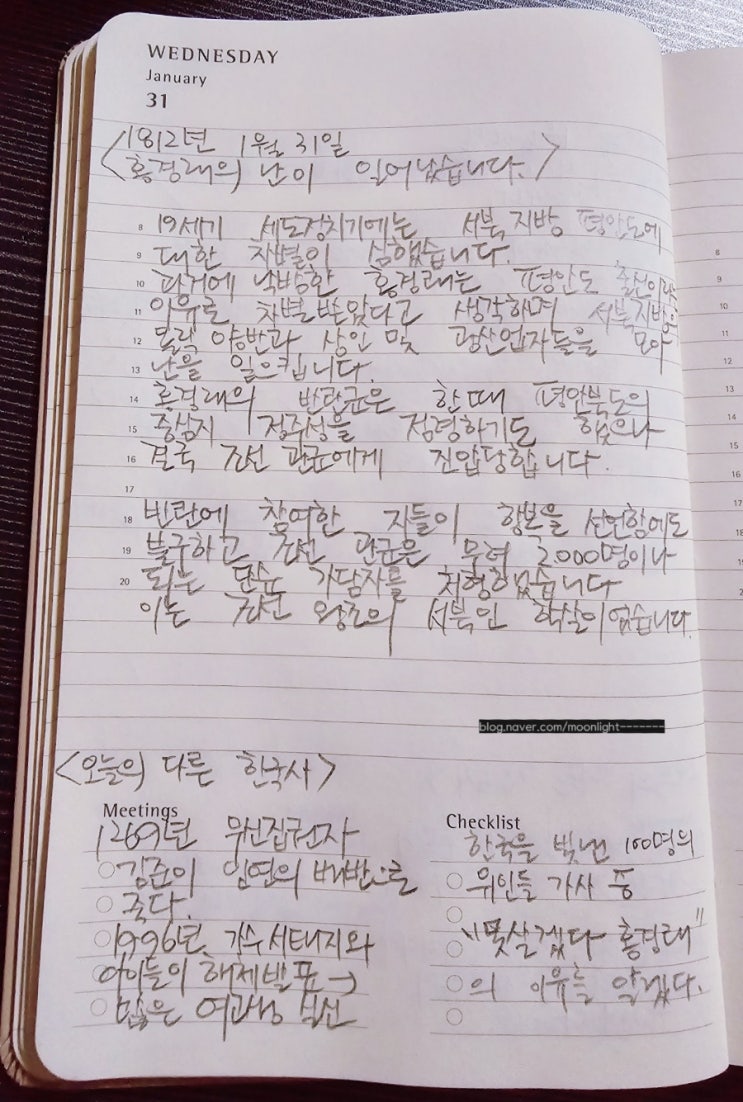 WEDNESDAY
January
31
<1812년 1월 31일
홍경래의 난이 일어났습니다.>
8 19세기 세도정치기에는 서북지방 평안도에
9 대한 차별이 심했습니다.
10 과거에 낙방한 홍경래는 평안도 출신이라
11 이유로 차별받았다고 생각하며 서북지방의
12 몰락 양반과 상인 및 광산업자들을 모아
13 난을 일으킵니다.
14 홍경래의 반란군은 한때 평안북도의
15 중심지 정주성을 점령하기도 했으나
16 결국 조선 관군에게 진압당합니다.
17
18 반란에 참여한 자들이 항복을 선언함에도
19 불구하고 조선 관군은 무려 2,000명이나
20 되는 단순 가담자를 처형했습니다
이는 조선 왕조의 서북인 학살이었습니다.
blog.naver.com/moonlight-------
<오늘의 다른 한국사>
Meetings
1269년 무신집권자
김준이 임연의 배반으로
죽다.
1996년 가수 서태지와
아이들이 해체발표 →
많은 여고생 실신
Checklist
한국을 빛낸 100명의
위인들 가사 중
"못살겠다 홍경래"
의 이유를 알겠다.
8
9
10
11
12
13
14
15
16
17
18
19